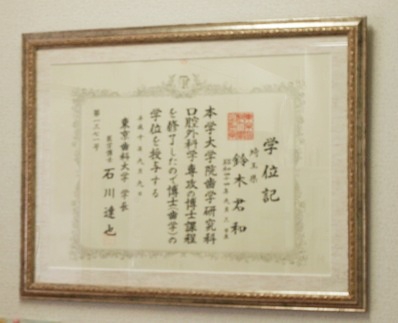 学位記
埼玉県
鈴木君和
本学大学院歯学研究科
口腔外科学専攻の博士課程
を修了したので博士(歯学)の
学位を授与する
東京歯科大学 学長
医学博士 石川達也